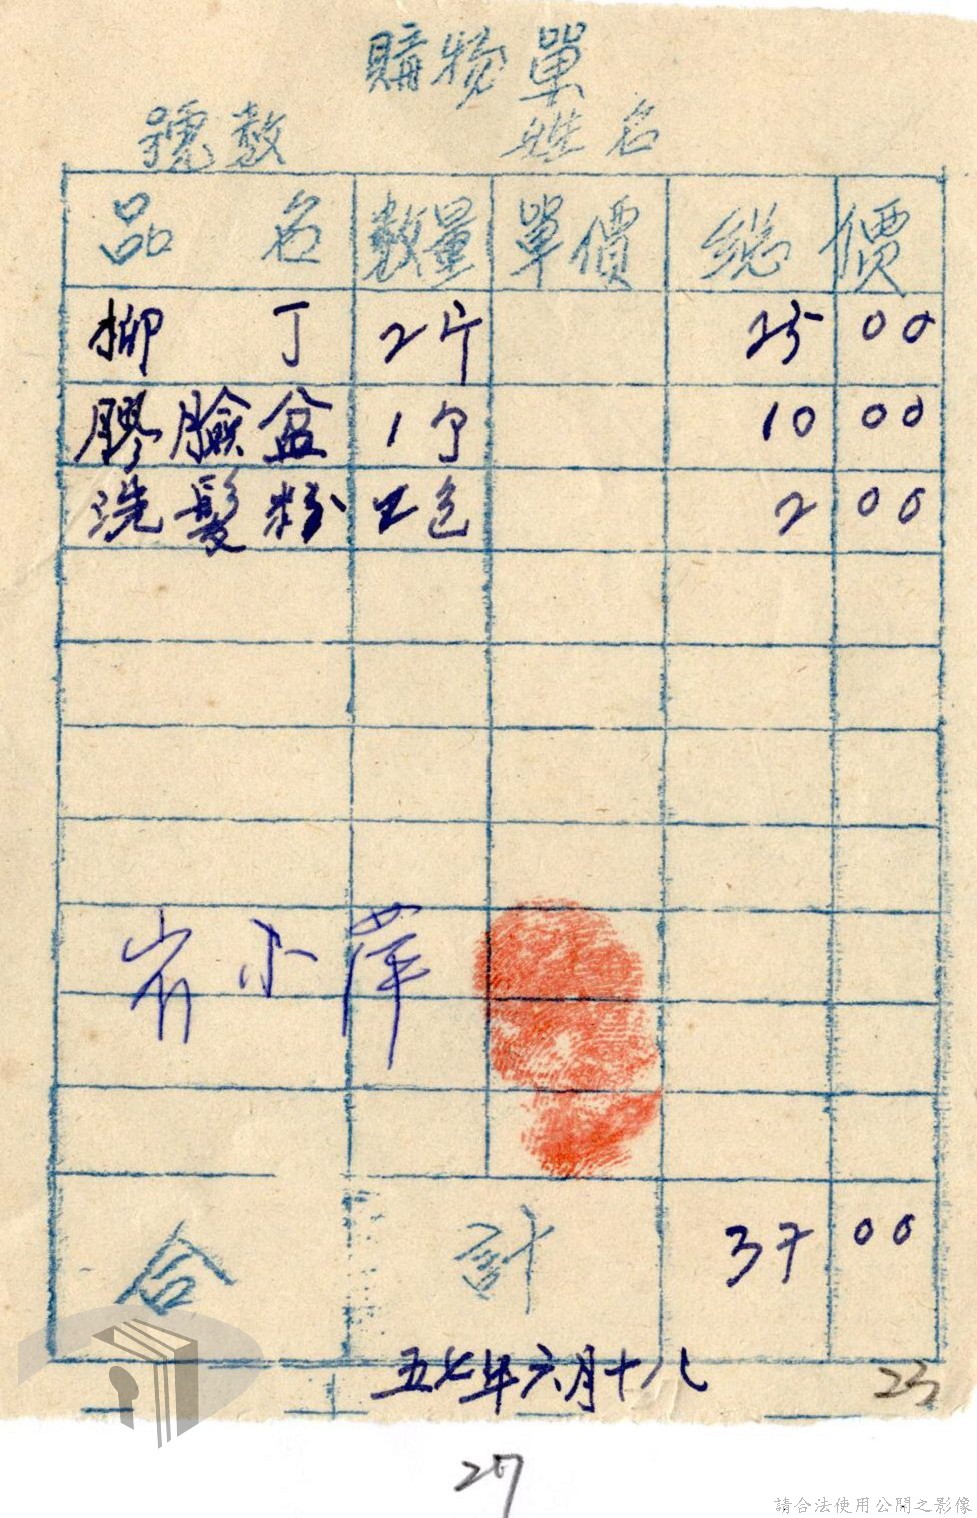 購物單
號數 姓名
品名 數量 單價 總價
柳丁 2斤 25 00
膠臉盆 1个 10 00
洗髮粉 包 2 00
崔小萍
合計 37 00
五七年六月十八
23
27
請合法使用公開之影像